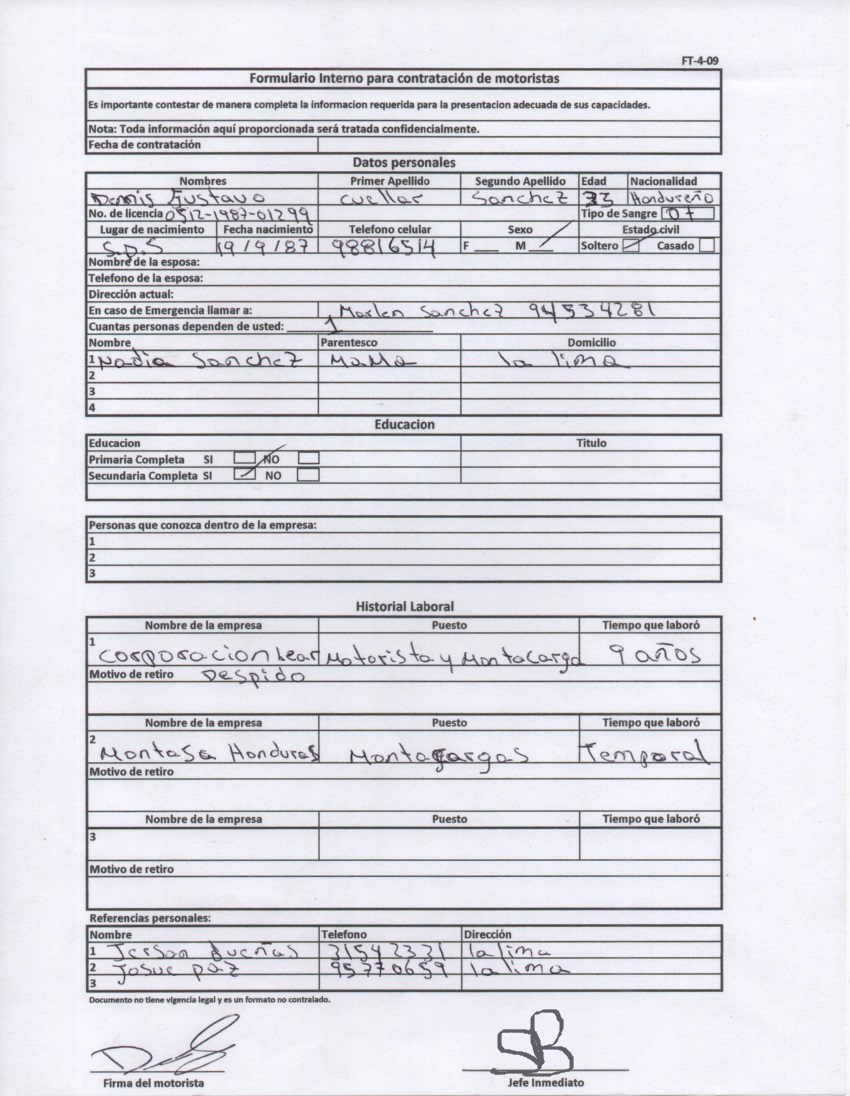 FT-4-09
Formulario Interno para contratación de motoristas
Es importante contestar de manera completa la informacion requerida para la presentacion adecuada de sus capacidades.
Nota: Toda información aquí proporcionada será tratada confidencialmente.
Fecha de contratación
Datos personales
Nombres Primer Apellido Segundo Apellido Edad Nacionalidad
Dennis Gustavo cuellar Sanchez 33 Hondureño
No. de licencia 0512-1987-01299 Tipo de Sangre O+
Lugar de nacimiento Fecha nacimiento Telefono celular Sexo Estado civil
S.P.S 19/9/87 98816514 F ___ M ___ Soltero Casado
Nombre de la esposa:
Telefono de la esposa:
Dirección actual:
En caso de Emergencia llamar a: Marlen Sanchez 94534281
Cuantas personas dependen de usted: 1
Nombre Parentesco Domicilio
1 Nadia Sanchez MaMa la lima
2
3
4
Educacion
Educacion Titulo
Primaria Completa SI NO
Secundaria Completa SI NO
Personas que conozca dentro de la empresa:
1
2
3
Historial Laboral
Nombre de la empresa Puesto Tiempo que laboró
1 corporacion Lear Motorista y Montacarga 9 años
Motivo de retiro Despido
Nombre de la empresa Puesto Tiempo que laboró
2 Montasa Honduras Montacargas Temporal
Motivo de retiro
Nombre de la empresa Puesto Tiempo que laboró
3
Motivo de retiro
Referencias personales:
Nombre Telefono Dirección
1 Jerson dueñas 31542331 la lima
2 Josue paz 95770659 la lima
3
Documento no tiene vigencia legal y es un formato no contralado.
Firma del motorista Jefe Inmediato